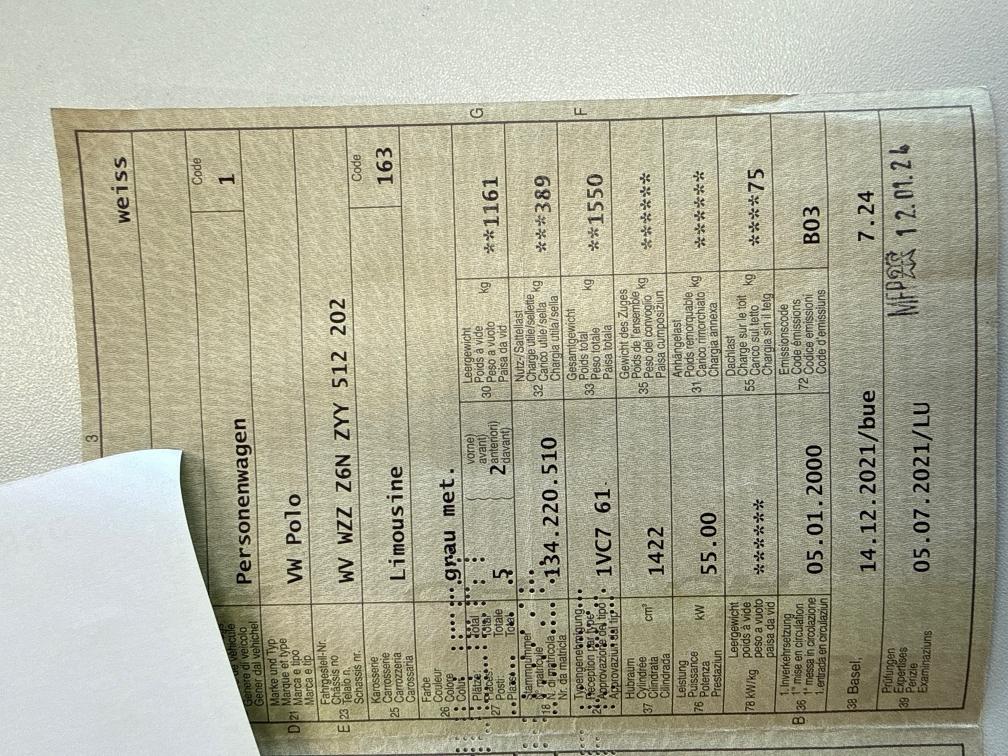 3
weiss
Genere di veicolo
Gener dal vehichel
Personenwagen
Code
1
D 21 Marke und Typ
Marque et type
Marca e tipo
Marca e tip
VW Polo
E 23 Fahrgestell-Nr.
Châssis no
Telaio n.
Schassis nr.
WV WZZ Z6N ZYY 512 202
25 Karosserie
Carrosserie
Carrozzeria
Carossaria
Limousine
Code
163
26 Farbe
Couleur
Colore
Colur
grau met.
27 Plätze
Places
Posti
Plazs
Total
Total
Totale
Total
5
2
vorne)
avant)
anteriori)
davant)
30 Leergewicht
Poids à vide
Peso a vuoto
Paisa da vid
kg
**1161
G
18 Stammnummer
N° matricule
N. di matricola
Nr. da matricla
134.220.510
32 Nutz-/Sattellast
Charge utile/sellette
Carico utile/sella
Chargia utila/sella
kg
***389
24 Typengenehmigung
Réception par type
Approvazione del tipo
Approvaziun dal tip
1VC7 61
33 Gesamtgewicht
Poids total
Peso totale
Paisa totala
kg
**1550
F
37 Hubraum
Cylindrée
Cilindrata
Cilindrada
cm³
1422
35 Gewicht des Zuges
Poids de l'ensemble
Peso del convoglio
Paisa cumposiziun
kg
******
76 Leistung
Puissance
Potenza
Prestaziun
kW
55.00
31 Anhängelast
Poids remorquable
Carico rimorchiato
Chargia annexa
kg
******
78 kW/kg
Leergewicht
poids à vide
peso a vuoto
paisa da vid
******
55 Dachlast
Charge sur le toit
Carico sul tetto
Chargia sin il tetg
kg
****75
B 36 1. Inverkehrsetzung
1re mise en circulation
1a messa in circolazione
1. entrada en circulaziun
05.01.2000
72 Emissionscode
Code émissions
Codice emissioni
Code d'emissiuns
B03
38 Basel
14.12.2021/bue
7.24
39 Prüfungen
Expertises
Perizie
Examinaziuns
05.07.2021/LU
12.01.24